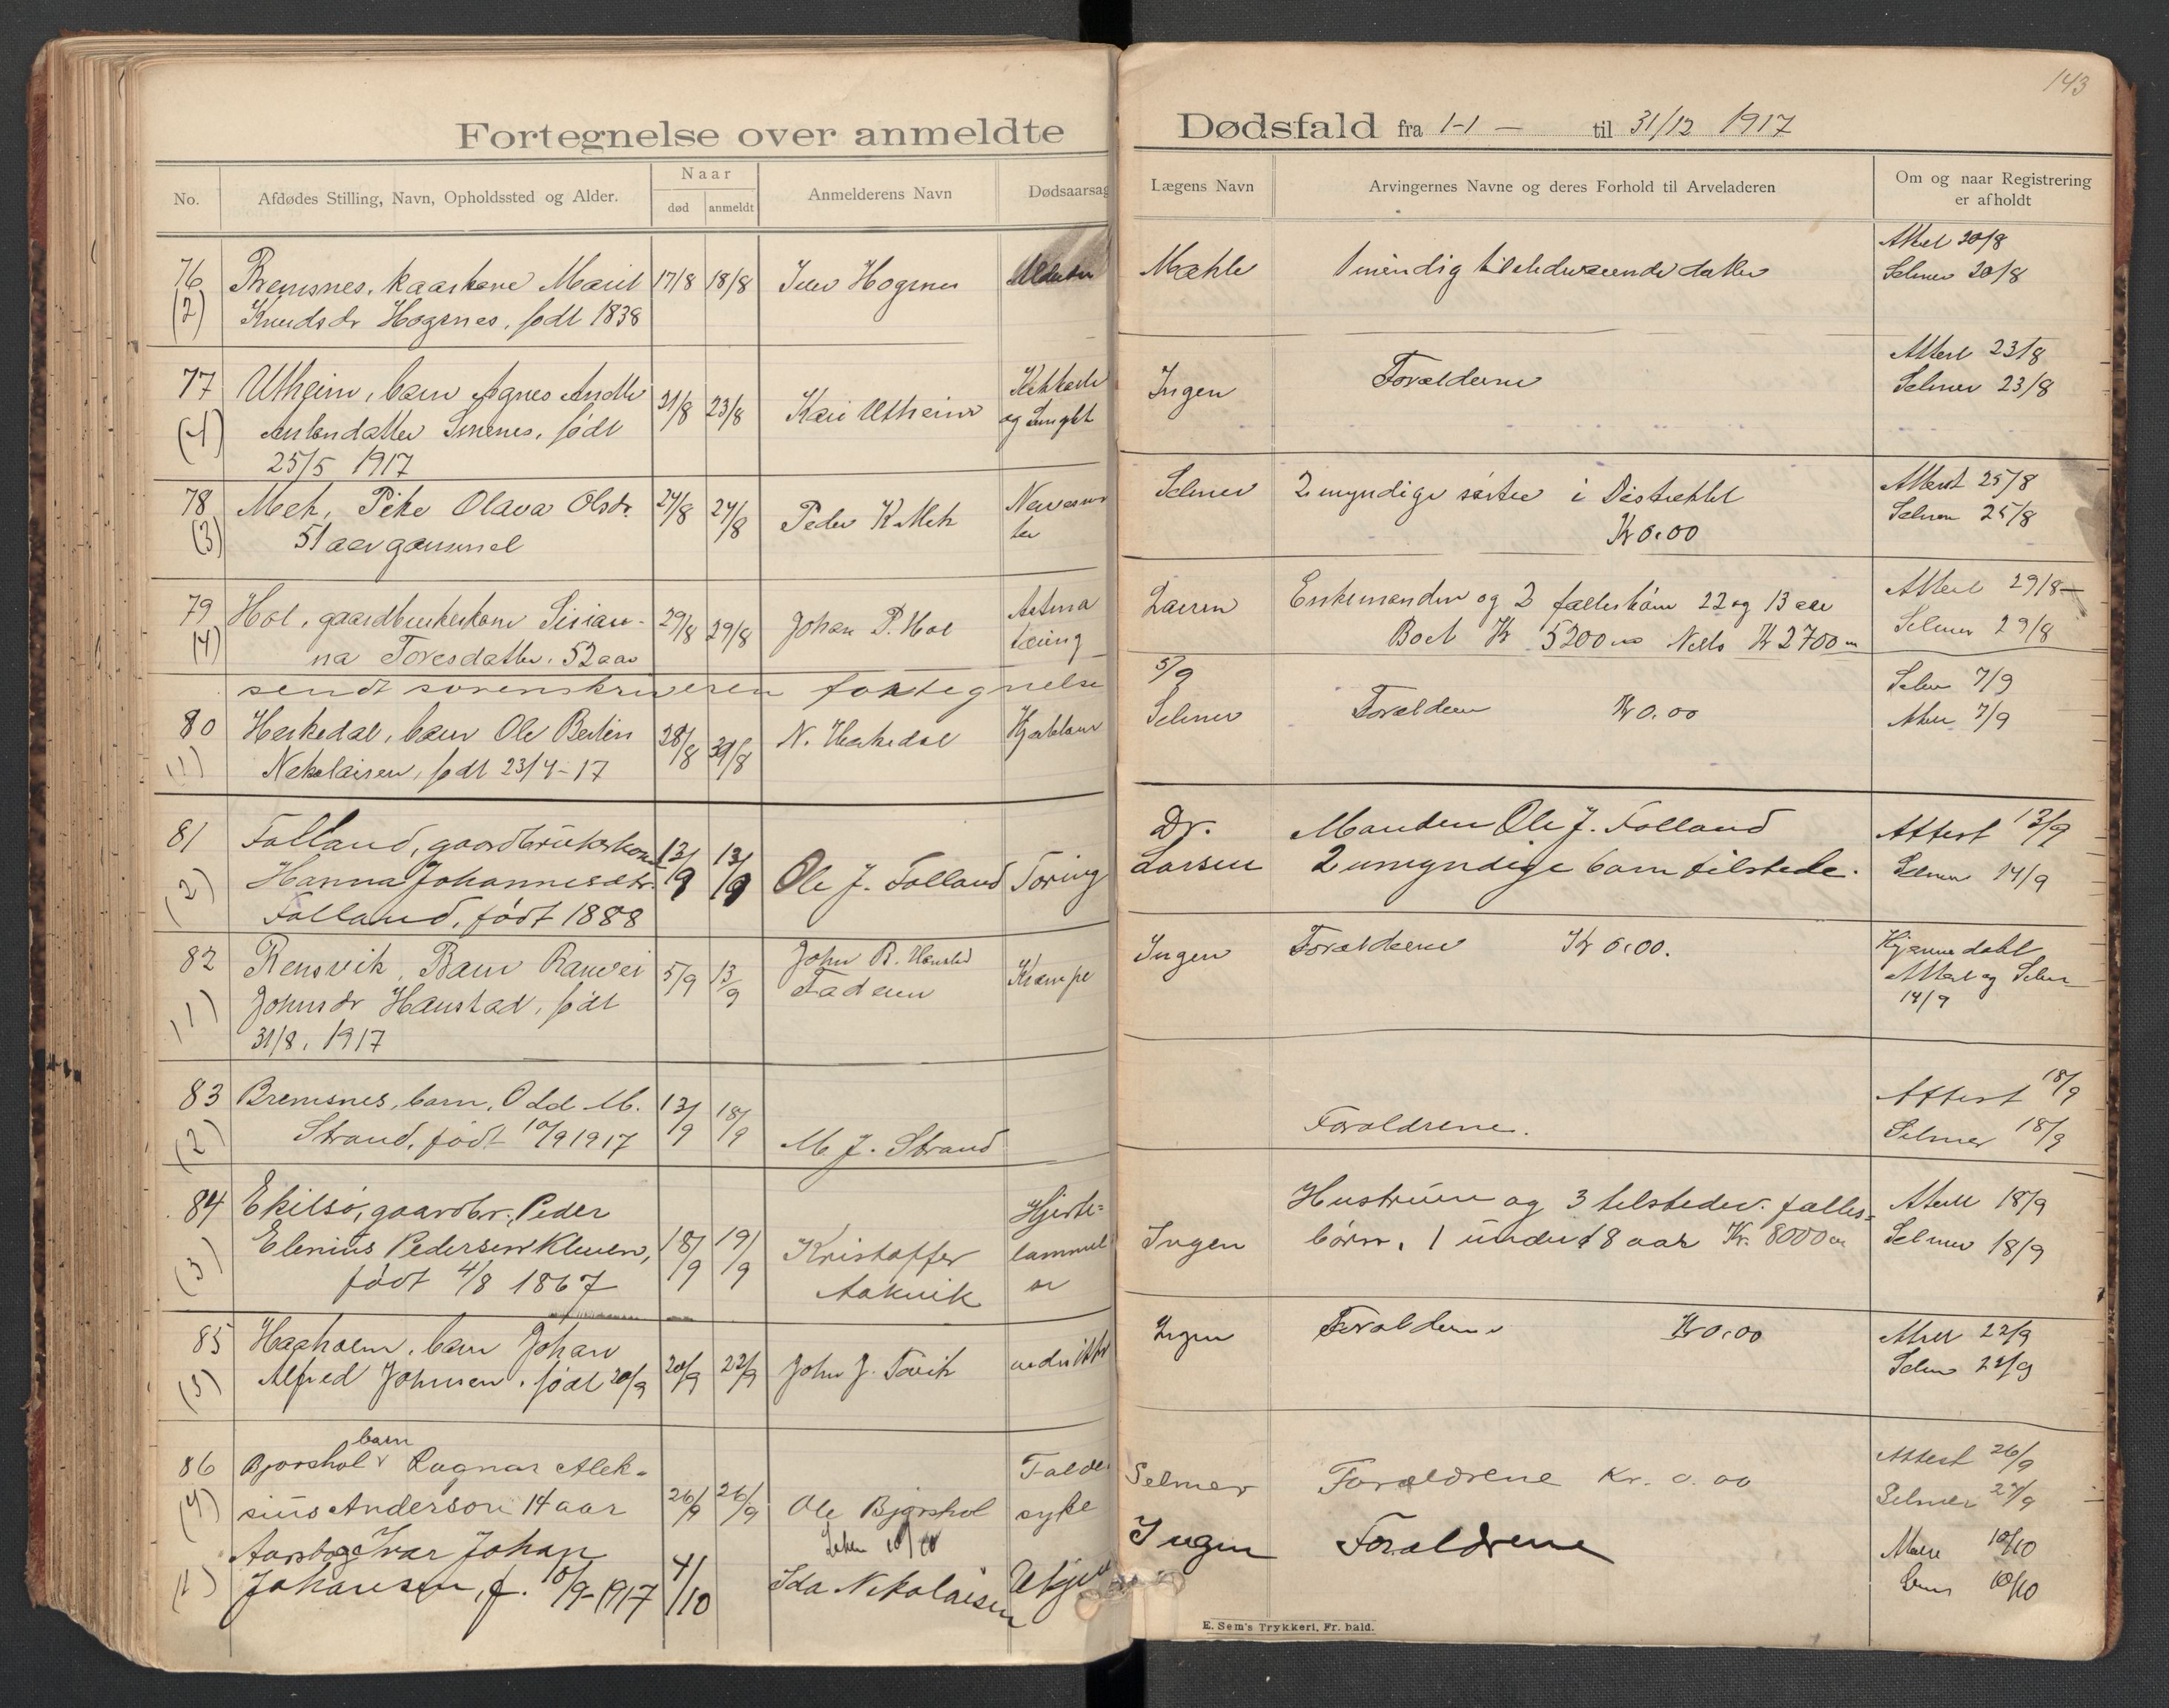 143
Fortegnelse over anmeldte Dødsfald fra 1-1 — til 31/12 1917
No.
Afdødes Stilling, Navn, Opholdssted og Alder.
Naar
død
anmeldt
Anmelderens Navn
Dødsaarsag
Lægens Navn
Arvingernes Navne og deres Forhold til Arveladeren
Om og naar Registrering
er afholdt
76 Bremsnes, kaarkone Marit 17/8 18/8
(2) Knudsdr Hogsnes, født 1838
1 myndig tilstedeværende datter
Attest 20/8
Selmer 20/8
77 Utheim, barn Agnes
født
25/5 1917
21/8 23/8 Kari Utheim
Kikhoste
og
Ingen Forældrene
Attest 23/8
Selmer 23/8
78 Mek, Pike Olava Olsdr. 24/8 24/8 Peder K Mek
(3) 51 aar gammel
Selmer 2 myndige søstre i Distriktet
Kr 0.00
Attest 25/8
Selmer 25/8
79 Hol, gaardbrukerkone
(4) na Toresdatter. 52 aar
29/8 29/8 Johan P. Hol
Astma
tæring
Larsen Enkemanden og 2 fællesbørn 22 og 13 aar
Boet Kr 5200 Netto Kr 2700
Attest 29/8
Selmer 29/8
sendt sorenskriveren fortegnelse 5/9
80 Heskedal, barn Ole 28/8 30/8 N. Heskedal
(1) Nikolaisen, født 23/4-17
Selmer Forældrene Kr 0.00
Selmer 7/9
Attest 7/9
81 Folland, gaardbrukerkone
(2) Hanna Johannesdtr.
Folland, født 1888
13/9 13/9 Ole J. Folland Tæring
Dr.
Larsen
Manden Ole J. Folland
2 umyndige barn tilstede.
Attest 13/9
Selmer 14/9
82 Rensvik, Barn
(1) Johnsdr Hanstad, født
31/8. 1917
5/9 13/9
John R. Hanstad
Faderen
Krampe
Ingen Forældrene Kr 0.00.
Attest og Selmer
14/9
83 Bremsnes, barn, Odd M.
(2) Strand, født 10/9 1917
13/9 18/9 M J. Strand
Forældrene.
Attest 18/9
Selmer 18/9
84 Ekilsø, gaardbr. Peder
(3) Elenius Pedersen Kleven,
født 4/8 1867
18/9 19/9 Kristoffer
Aakvik
Hjerte-
lammel
se
Ingen
Hustruen og 3 tilstedev. fælles-
børn, 1 under 18 aar Kr. 8000
Attest 18/9
Selmer 18/9
85 Haaholm, barn Johan
Alfred Johnsen, født 20/9
20/9 22/9 John J.
Ingen Forældrene Kr 0.00
Attest 22/9
Selmer 22/9
86 Bjørshol barn Ragnar Alek-
(4) sius Anderson 14 aar
26/9 26/9 Ole Bjørshol
Falde
syke
Selmer Forældrene Kr. 0.00
Attest 26/9
Selmer 27/9
Ivar Johan
Johansen, f. 10/9-1917
4/10 Ida Nikolaisen
Ingen Forældrene
Attest 10/10
10/10
E. Sem's Trykkeri, Fr. hald.